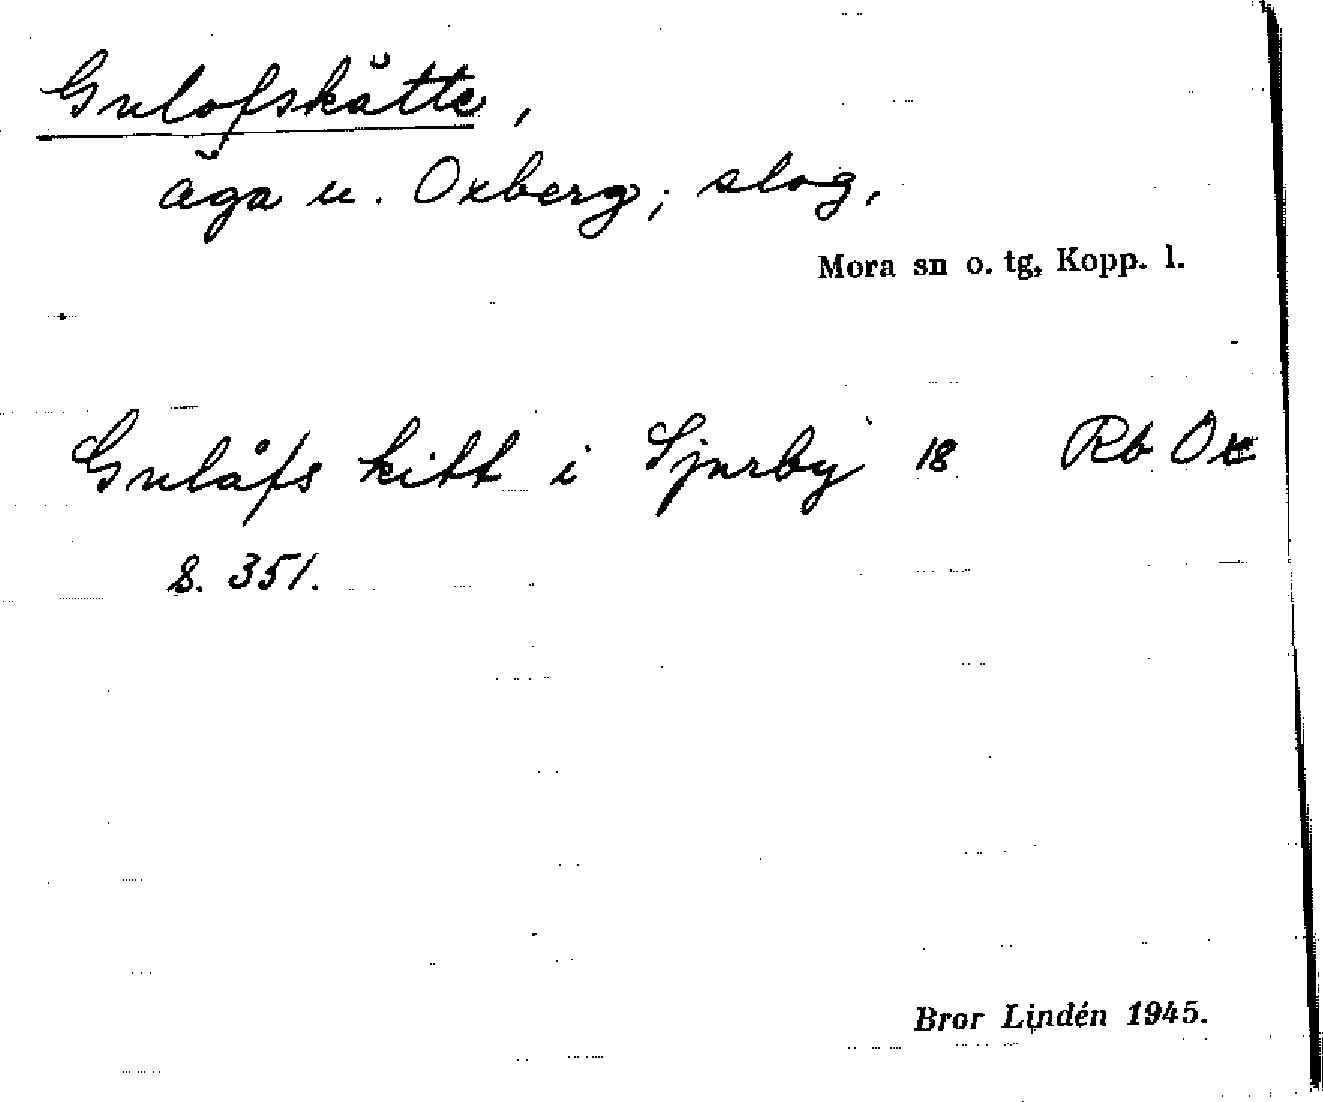 Gulofskätte,
äga u. Oxberg; slog,
Mora sn o. tg, Kopp. l.
Gulåfs kitt i Sjurby 18 Rb Ox
s. 351.
Bror Lindén 1945.